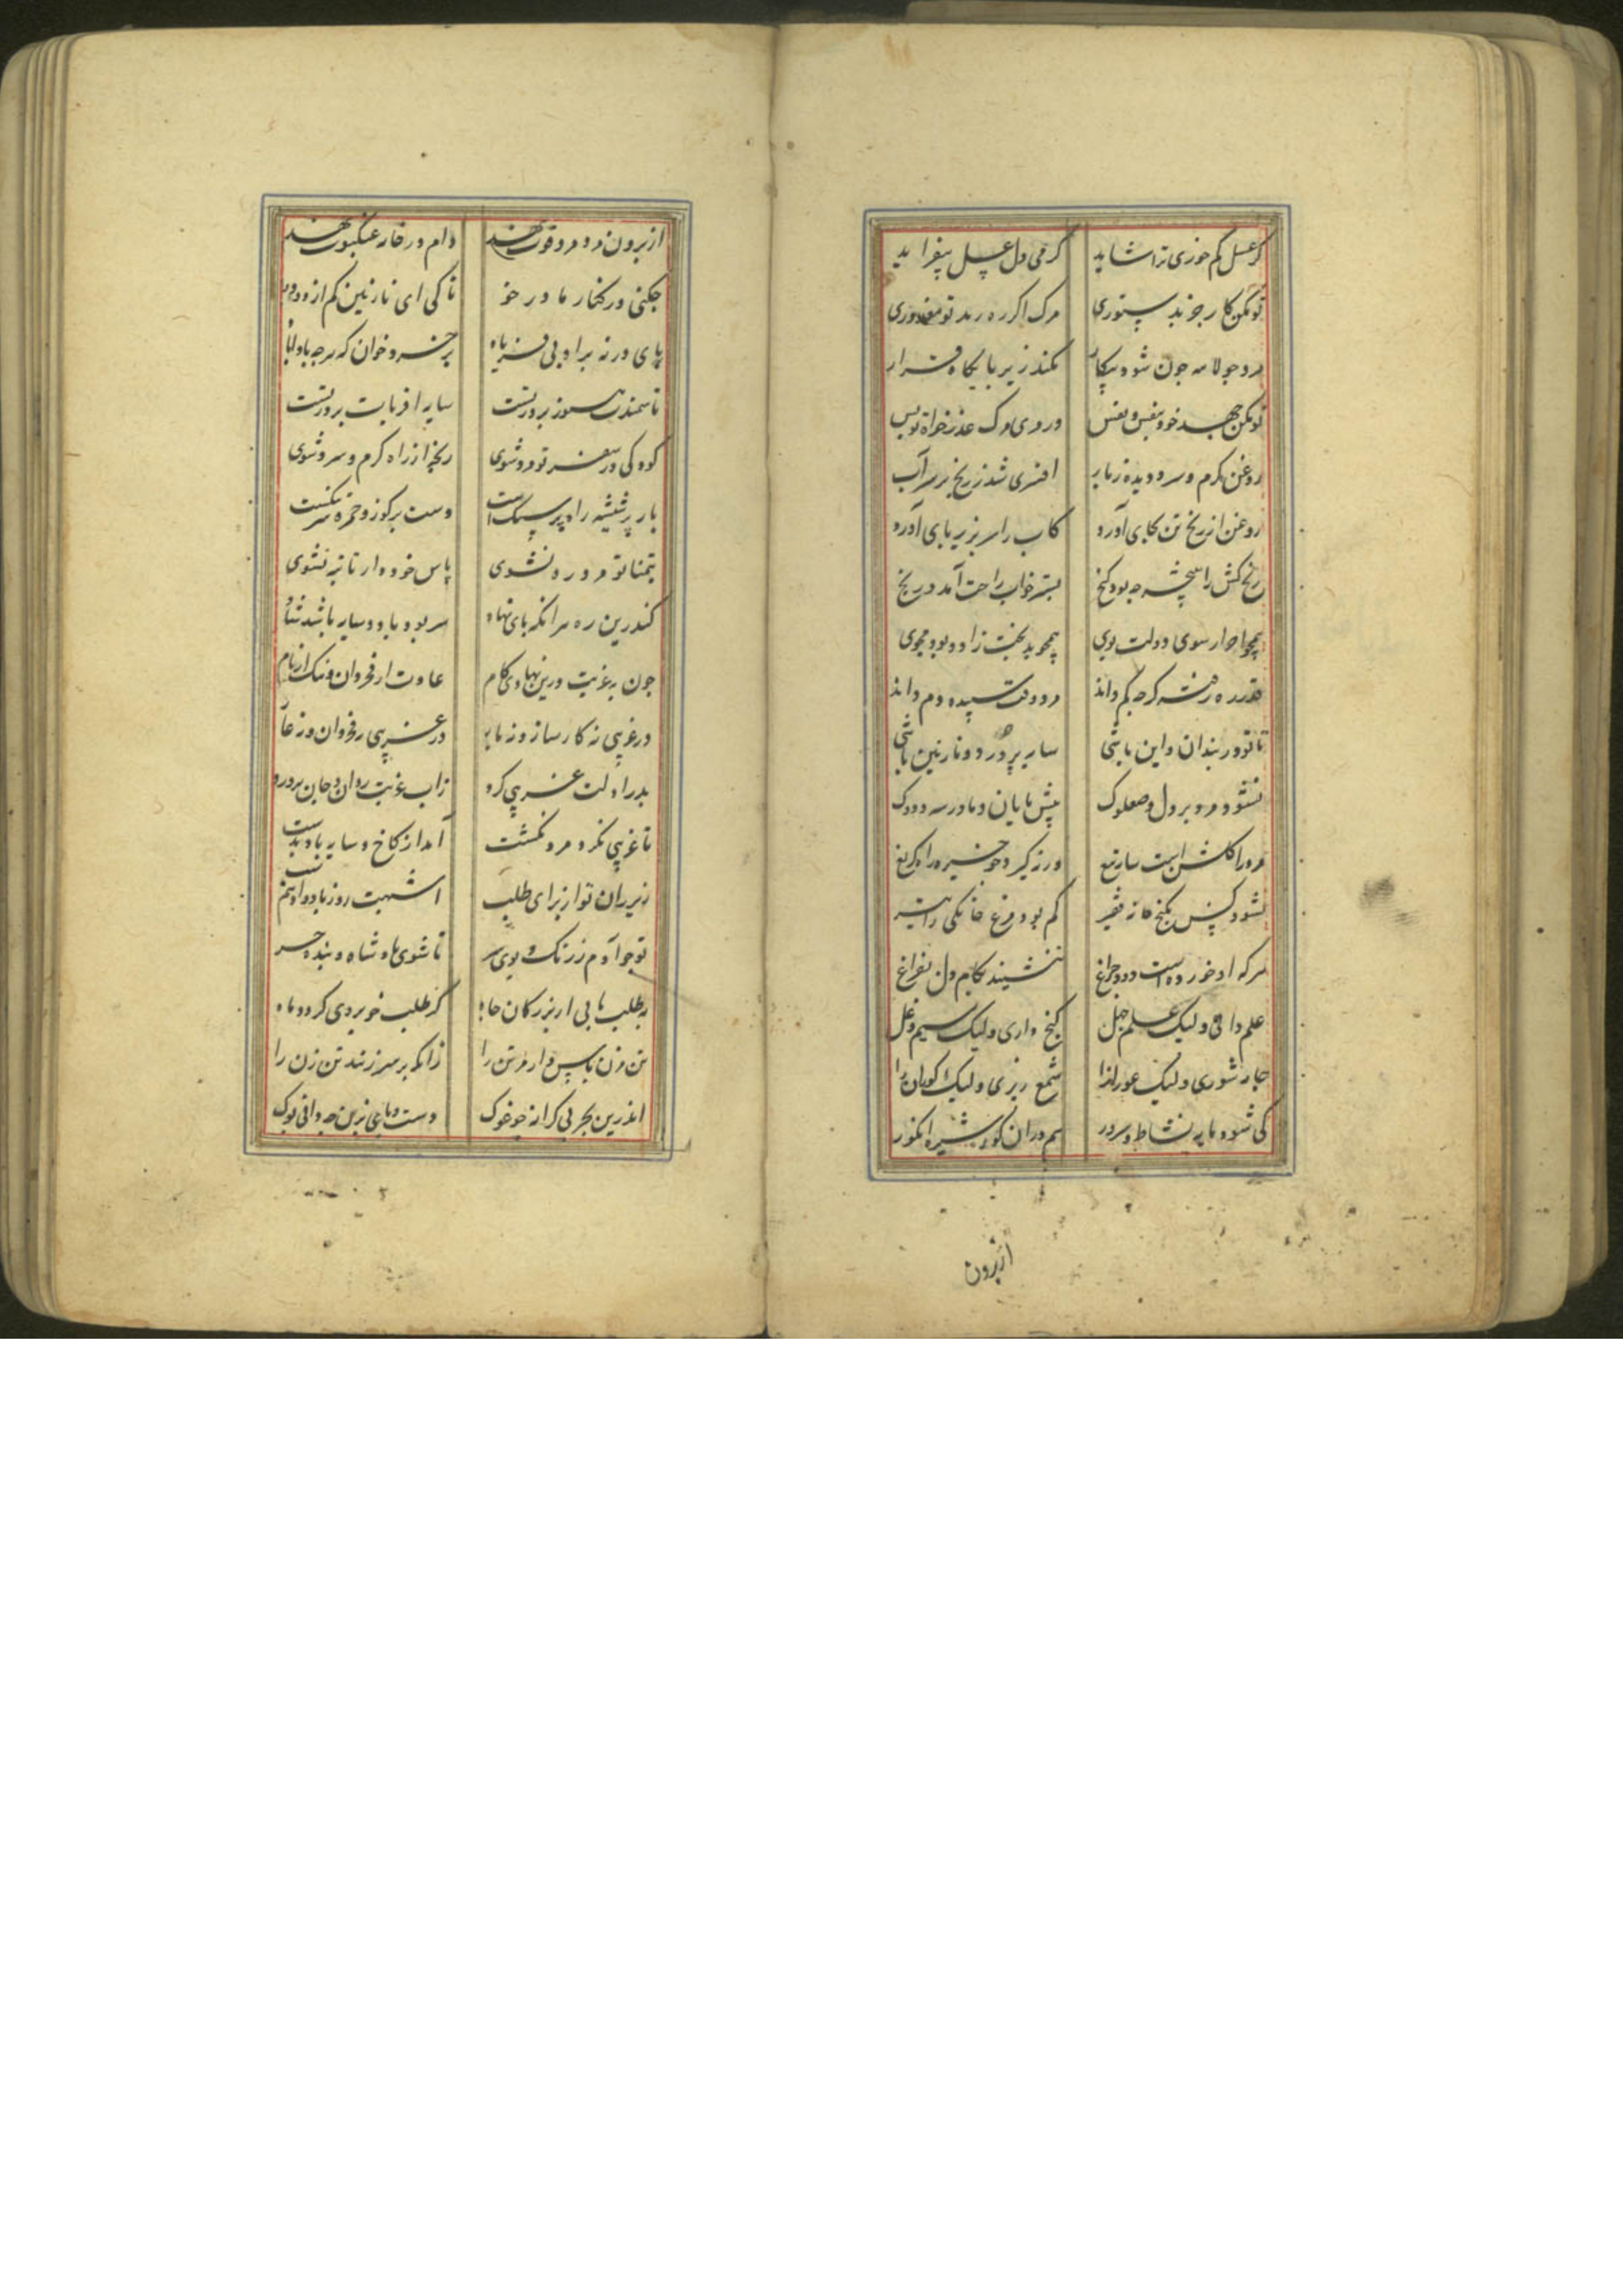 کر عسل کم خوری ترا شاید کرمی دل عسل بیفزاید
تو بکن کار خود بدستوری مرک اکر ره زند تو معذوری
مرد جولاسه جون شود بیکار نکند زیر بایکاه قرار
تو بکن جهد خود بنفس و نفس ور روی مرک عذر خواه تو بس
روغن کرم و سرد دیده ز ناب افسری شد ز رنج بر سر آب
روغن از رنج تن بجای آورد کاب را سر بزیر بای آورد
رنج کش را بجشم جه بود کنج بستر خواب راحت آمد رنج
همجو احرار سوی دولت بوی همجو بدبخت زاد و بود مجوی
قدر ره رفته کرجه کم داند مرد وقت سپیده دم داند
تا تو در بند آن و این باشی سایه پرورد و نازنین باشی
نشود مرد پر دل و صعلوک پیش مامان و مادر سه و دوک
مرد را کلشن است سایه تیغ ورنه کیر دجو خیره راه کریغ
نشود کس بکنج خانه فقیر کم بود مرغ خانکی را
هرکه او خورده است دود جراغ ننشیند بکام دل بفراغ
علم داری ولیک علم جهل کنج داری ولیک سیم دغل
جاه شوری ولیک عورانرا شمع ریزی ولیک کورانرا
کی شود مایه نشاط و سرور هم در آن کور شیره انکور
ازبرون
از برون مرد مرد قوت نهند دام در خانه عنکبوت نهند
جکنی در کنار مادر خو تا کی ای نازنین کم از دو دو
پای در نه براه بی فریاد بر خسرو خوان که هرجه باداباد
تا سمندت هنوز بر در تست سایه افربات بر در تست
کودکی در سفر تو مرد شوی رنجه از راه کرم و سرد شوی
بار پر شیشه راه پر سنک است دست بر کوز و خمره
بتمنا تو مرد ره نشوی پاس خود دار تا تبه نشوی
کندرین ره هر آنکه بای نهاد سر بود باد و سایه باشد
جون بغربت درین نهادی کام عادت از فخر دان و ننک از نام
در غریبی نه کار ساز و نه مایه در غریبی نه فخر دان و نه عار
بدر را دولت غریبی کرد زاب غربت روان و جان پرورد
تا غریبی نکرد مرد نکشت آمد از کاخ و سایه باد بدست
زیر ران تو از برای طلب اشهبت روز باد و ادهم شب
تو جو آدم ز رنک و بوی تا شوی ماه و شاه و بنده و حر
بطلب یابی از بزرکان جاه کز طلب خو بردی کرد و ماه
تن مزن پاس دار مر تن را زانکه بر سر زنند تن زن را
اندرین بحر بی کرانه جو غوک دست و پایی بزن جه دانی بوک